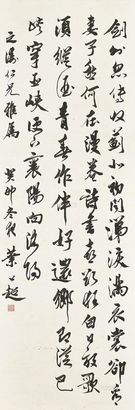 劍外忽傳收薊北初聞涕淚滿衣裳卻看
妻子愁何在漫卷詩書喜欲狂白日放歌
須縱酒青春作伴好還鄉即從巴
峽穿巫峽便下襄陽向洛陽
仁兄雅屬 癸卯冬 葉公超